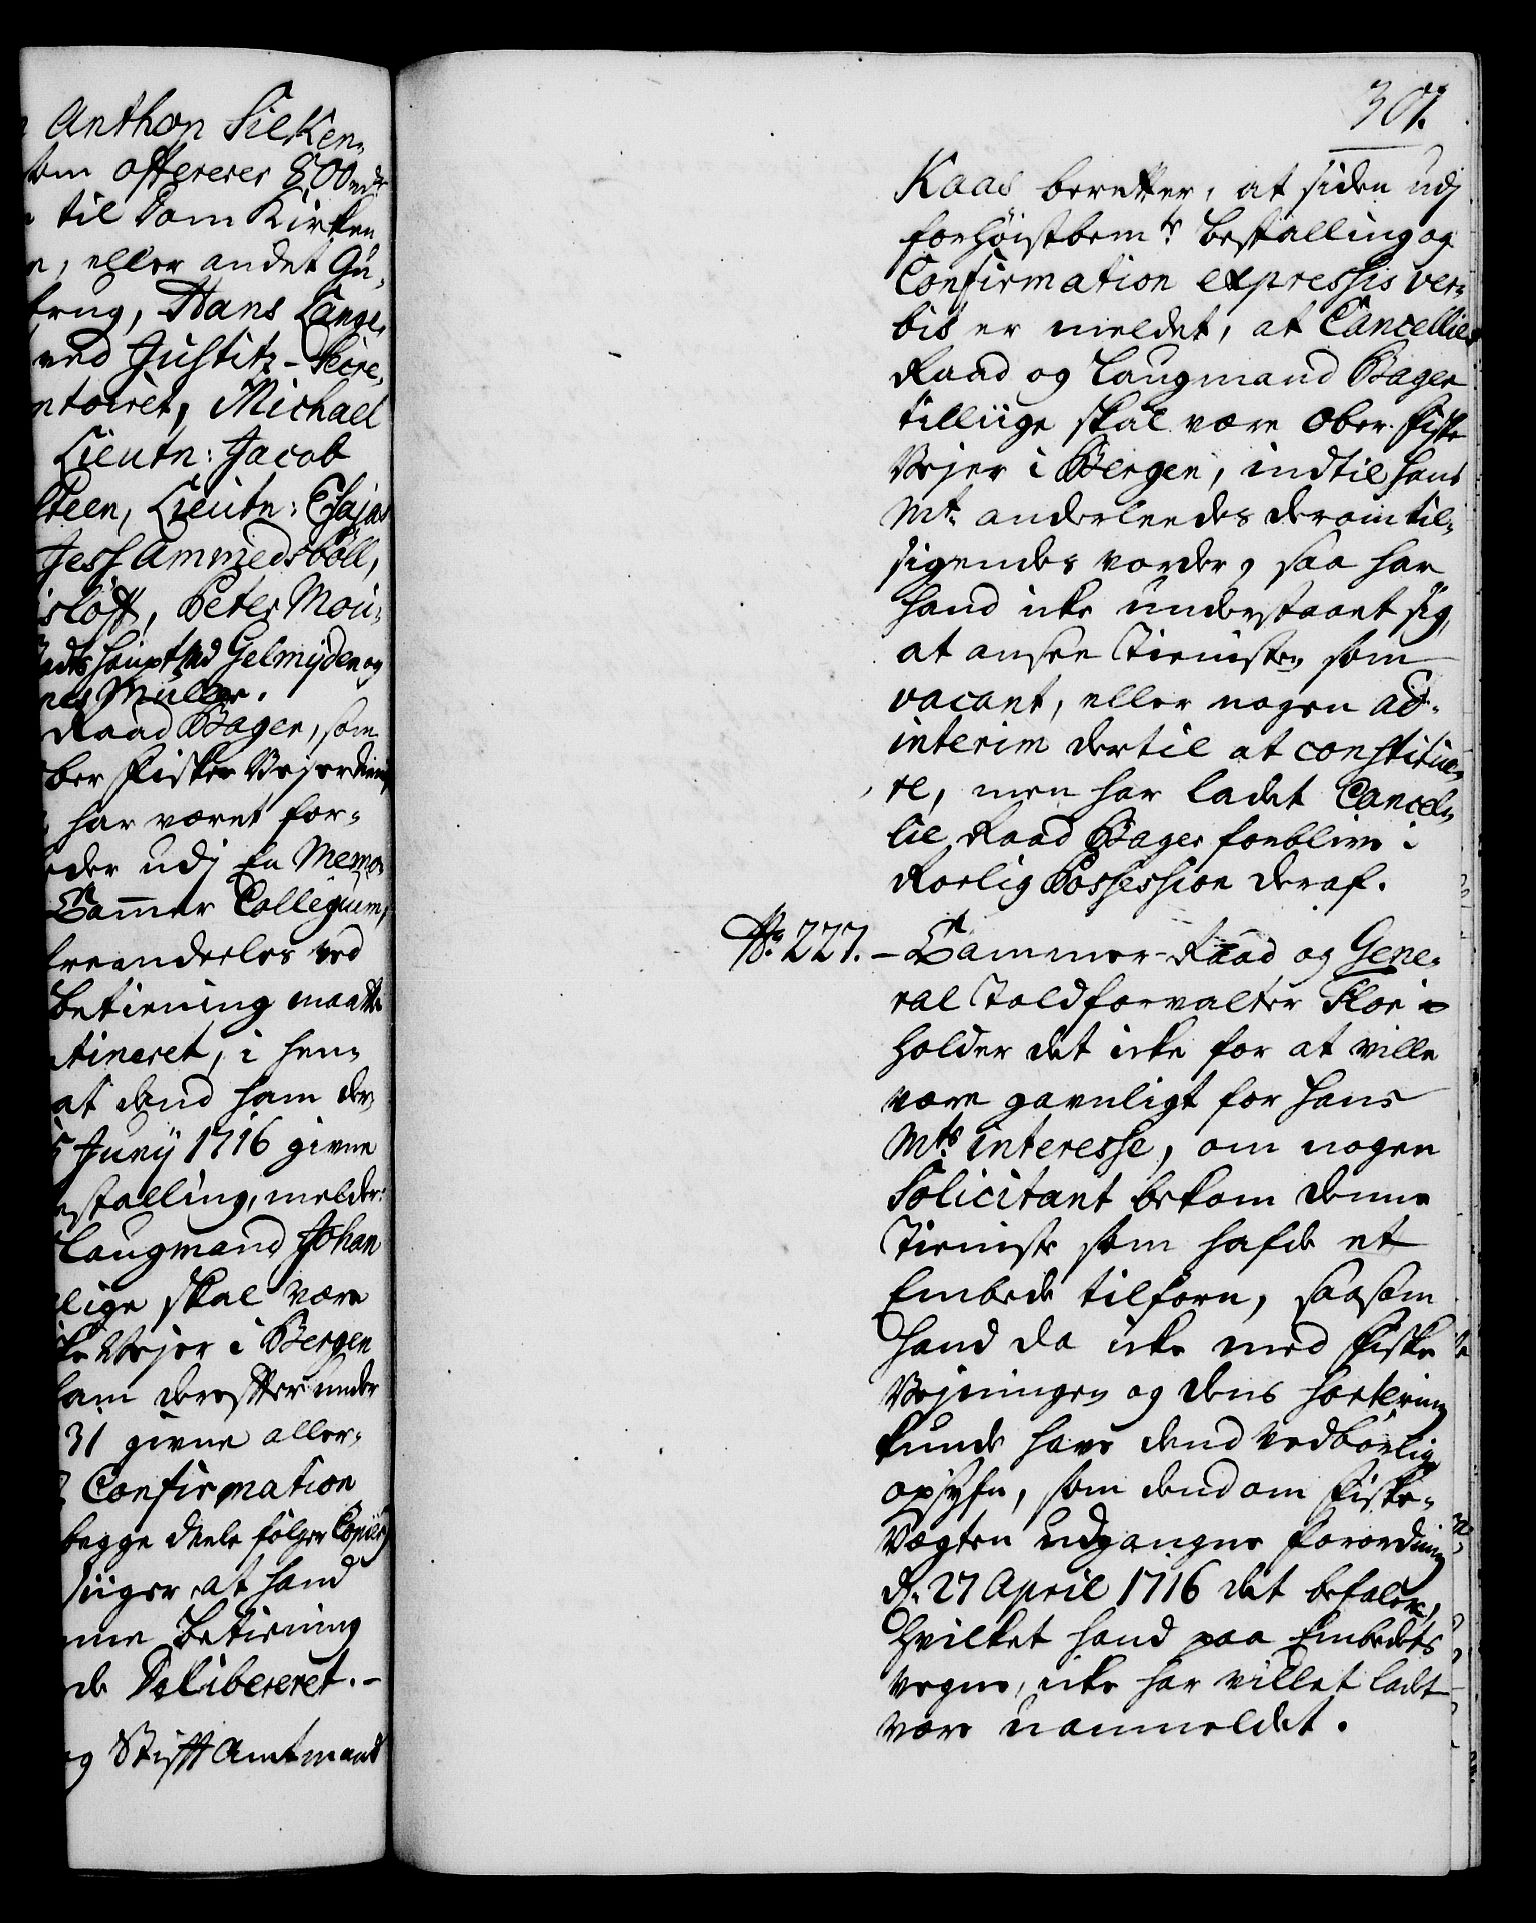 Anthon Sieken-
som offererer 800 rdr
til Dom Kirken
eller andet Gu-
brug, Hans Lange,
ved Justitz-Secre-
ntoiret, Michael
Lieutn: Jacob
steen, Lieutn: Esajas
Jess Ammedsböll,
isløff, Peter Mou-
Gelmÿden og
Müller.
Raad Bager, som
ber Fiske Vejer
har været for-
eder udj En Memo
Cammer Collegium,
freanderles ved
betiening maatte
tineret, i hen-
at dend ham der
5 Junÿ 1716 givne
estalling, melder:
Laugmand Johan
lige skal være
ke Vejer i Bergen
ham derefter under
31 givne aller-
Confirmation
begge deele følger Copier
siiger at hand
nne betiening
de Delibereret. -
og Stifft Amtmand
301.
Kaas beretter, at siden udj
forhøistbemte bestalling og
Confirmation expressis ver-
bis er meldet, at Cancellie
Raad og Laugmand Bager
tilliige skal være Ober Fiske
Vejer i Bergen, indtil hans
Mt: anderleedes derom til-
sigendes vorder, saa har
hand icke understaaet sig,
at ansee Tienisten som
vacant, eller nogen ad-
interim dertil at constitue-
re, men har ladet Cancel-
lie Raad Bager forblive i
Roelig Possession deraf.
No. 227. - Cammer-Raad og Gene-
ral Toldforvalter Floe
holder det icke for at ville
være gavnligt for Hans
Mts interesse, om nogen
Solicitant bekom denne
Tieniste som hafde et
Embede tilforn, saasom
hand da icke med Fiske
Vejningen og dens sortering
kunde have dend vedbørlig
opsyn, som dend om Fiske-
Vægten udgangne Forordning
d. 27 April 1716 det befaler,
hvilket hand paa Embedets
vegne, icke har villet ladt
være uanmeldet.